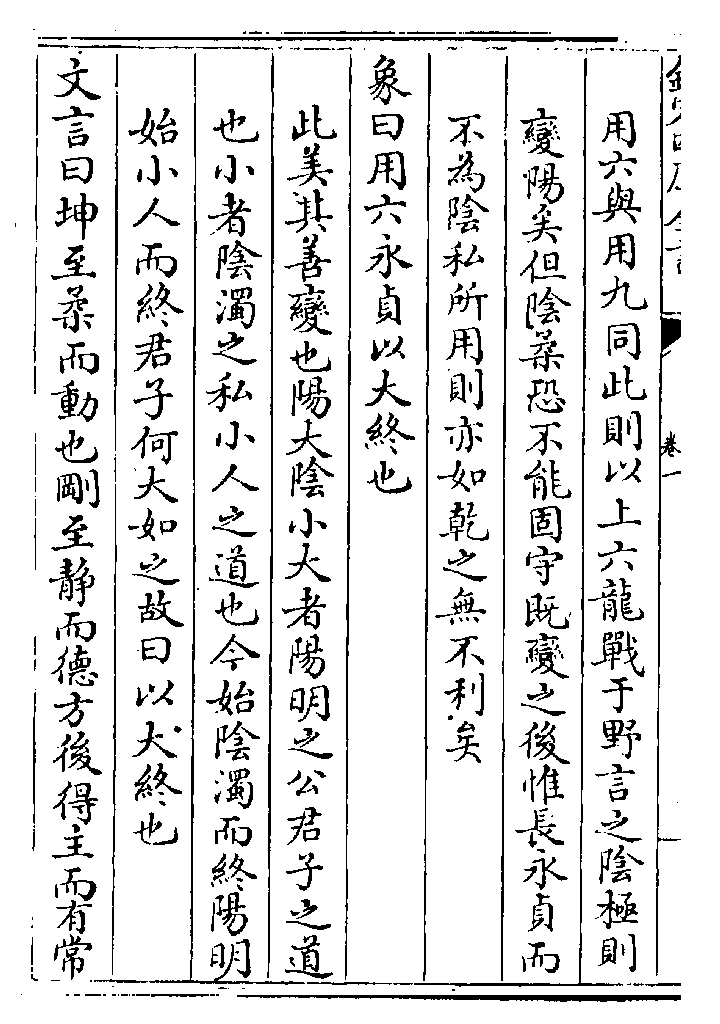 用六與用九同此則以上六龍戰于野言之陰極則
變陽矣但陰柔恐不能固守既變之後惟長永貞而
不為陰私所用則亦如乾之無不利矣
象曰用六永貞以大終也
此美其善變也陽大陰小大者陽明之公君子之道
也小者陰濁之私小人之道也今始陰濁而終陽明
始小人而終君子何大如之故曰以大終也
文言曰坤至柔而動也剛至静而德方後得主而有常
卷一